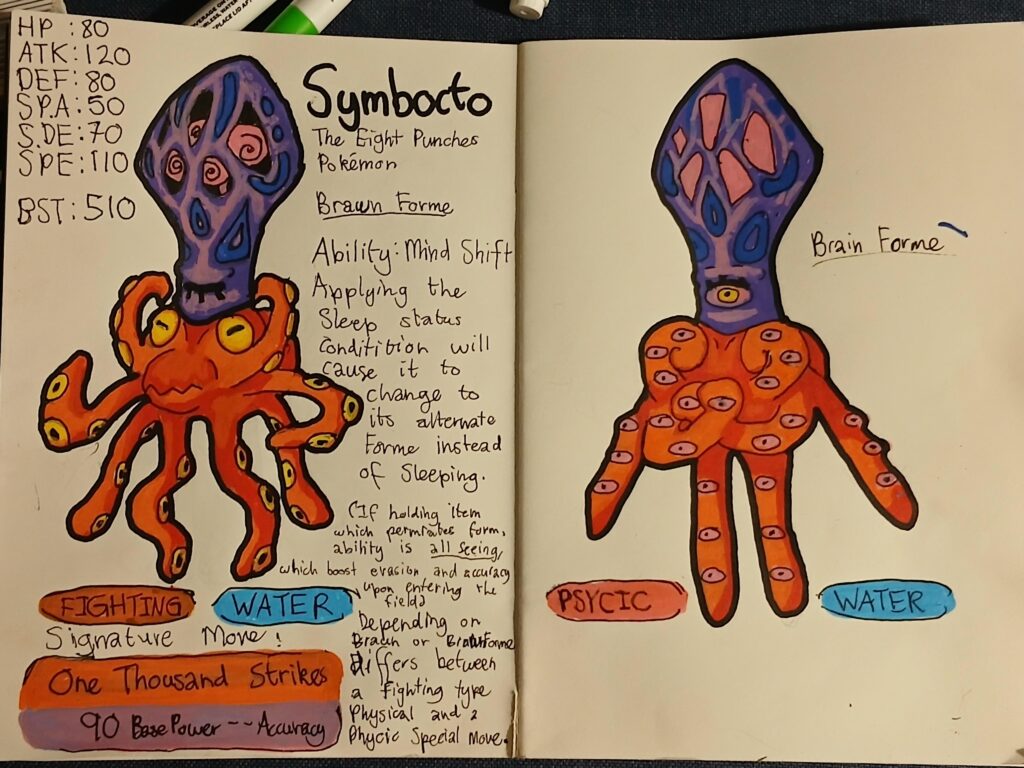 HP : 80
ATK: 120
DEF: 80
SP.A: 50
S.DE: 70
SPE: 110
BST: 510
Symbocto
The Eight Punches
Pokémon
Brawn Forme
Ability: Mind Shift
Applying the
Sleep status
Conditition will
cause it to
change to
its alternate
Forme instead
of Sleeping.
(If holding item
which permiates form,
ability is all seeing,
which boost evasion and accuracy
upon entering the
field)
Depending on
Brawn or Brain Forme
Differs between
a Fighting type
Physical and a
Phycic Special Move.
FIGHTING
WATER
Signature Move:
One Thousand Strikes
90 Base Power -- Accuracy
Brain Forme
PSYCIC
WATER